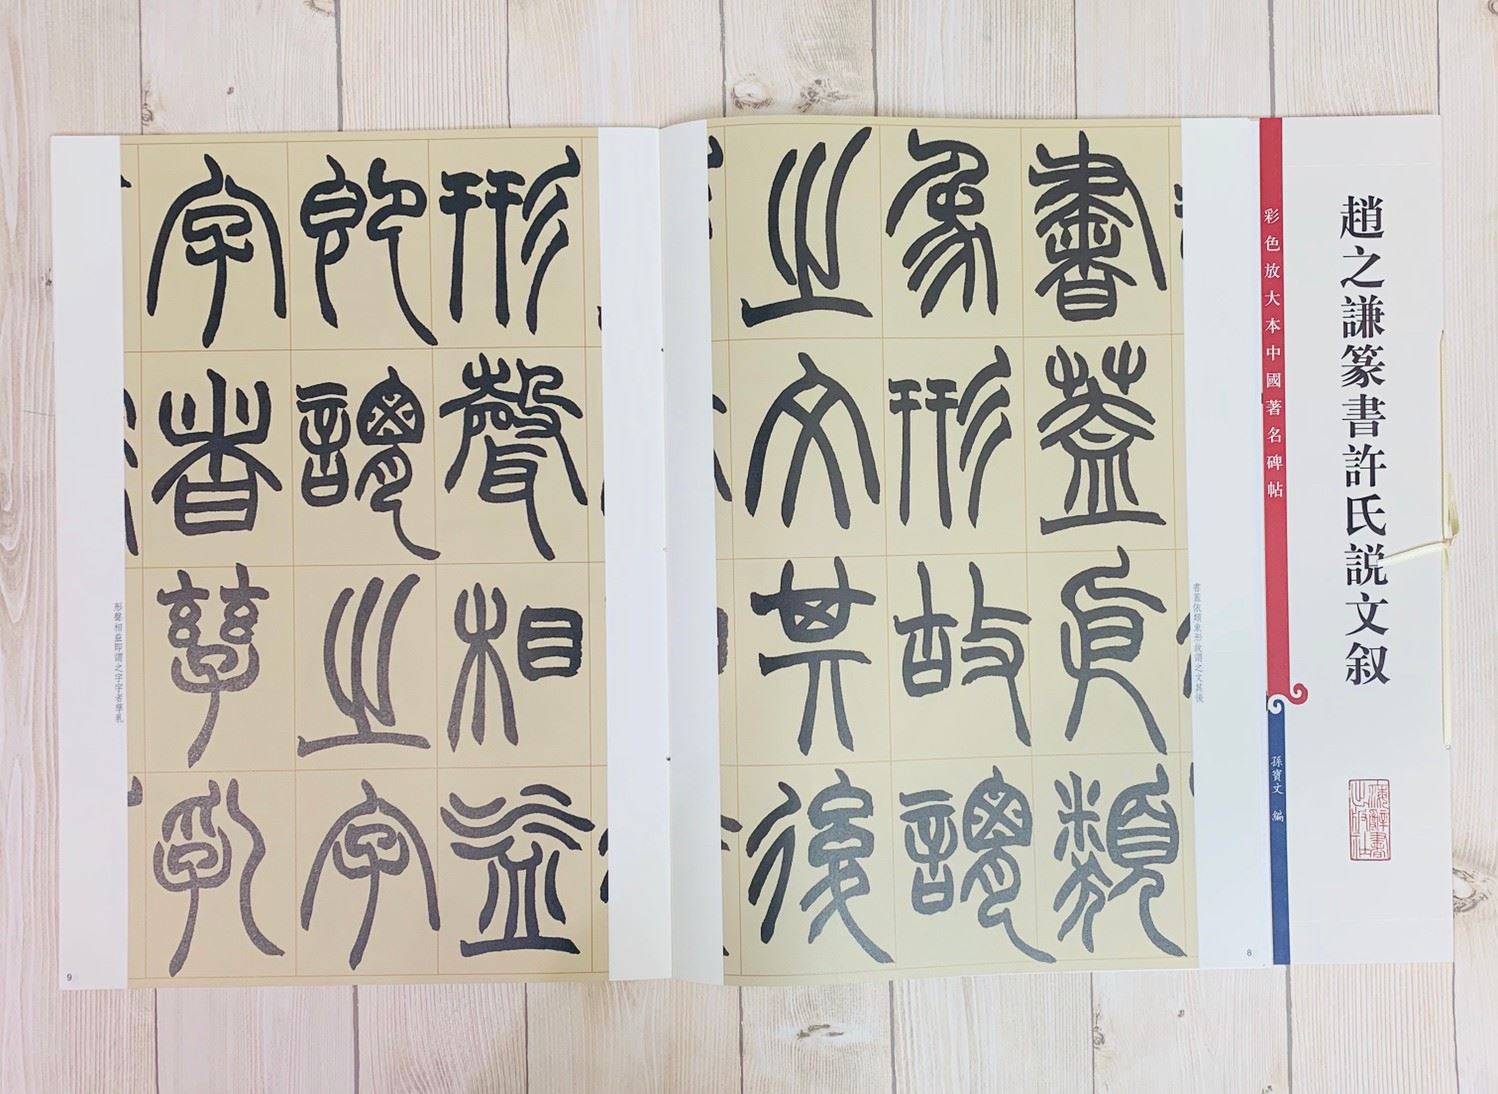 趙之謙篆書許氏説文叙
彩色放大本中國著名碑帖
孫寶文 編
書蓋依類象形故謂之文其後
書蓋依類
象形故謂
之文其後
8
形聲相益
即謂之字
字者孳乳
形聲相益即謂之字字者孳乳
9